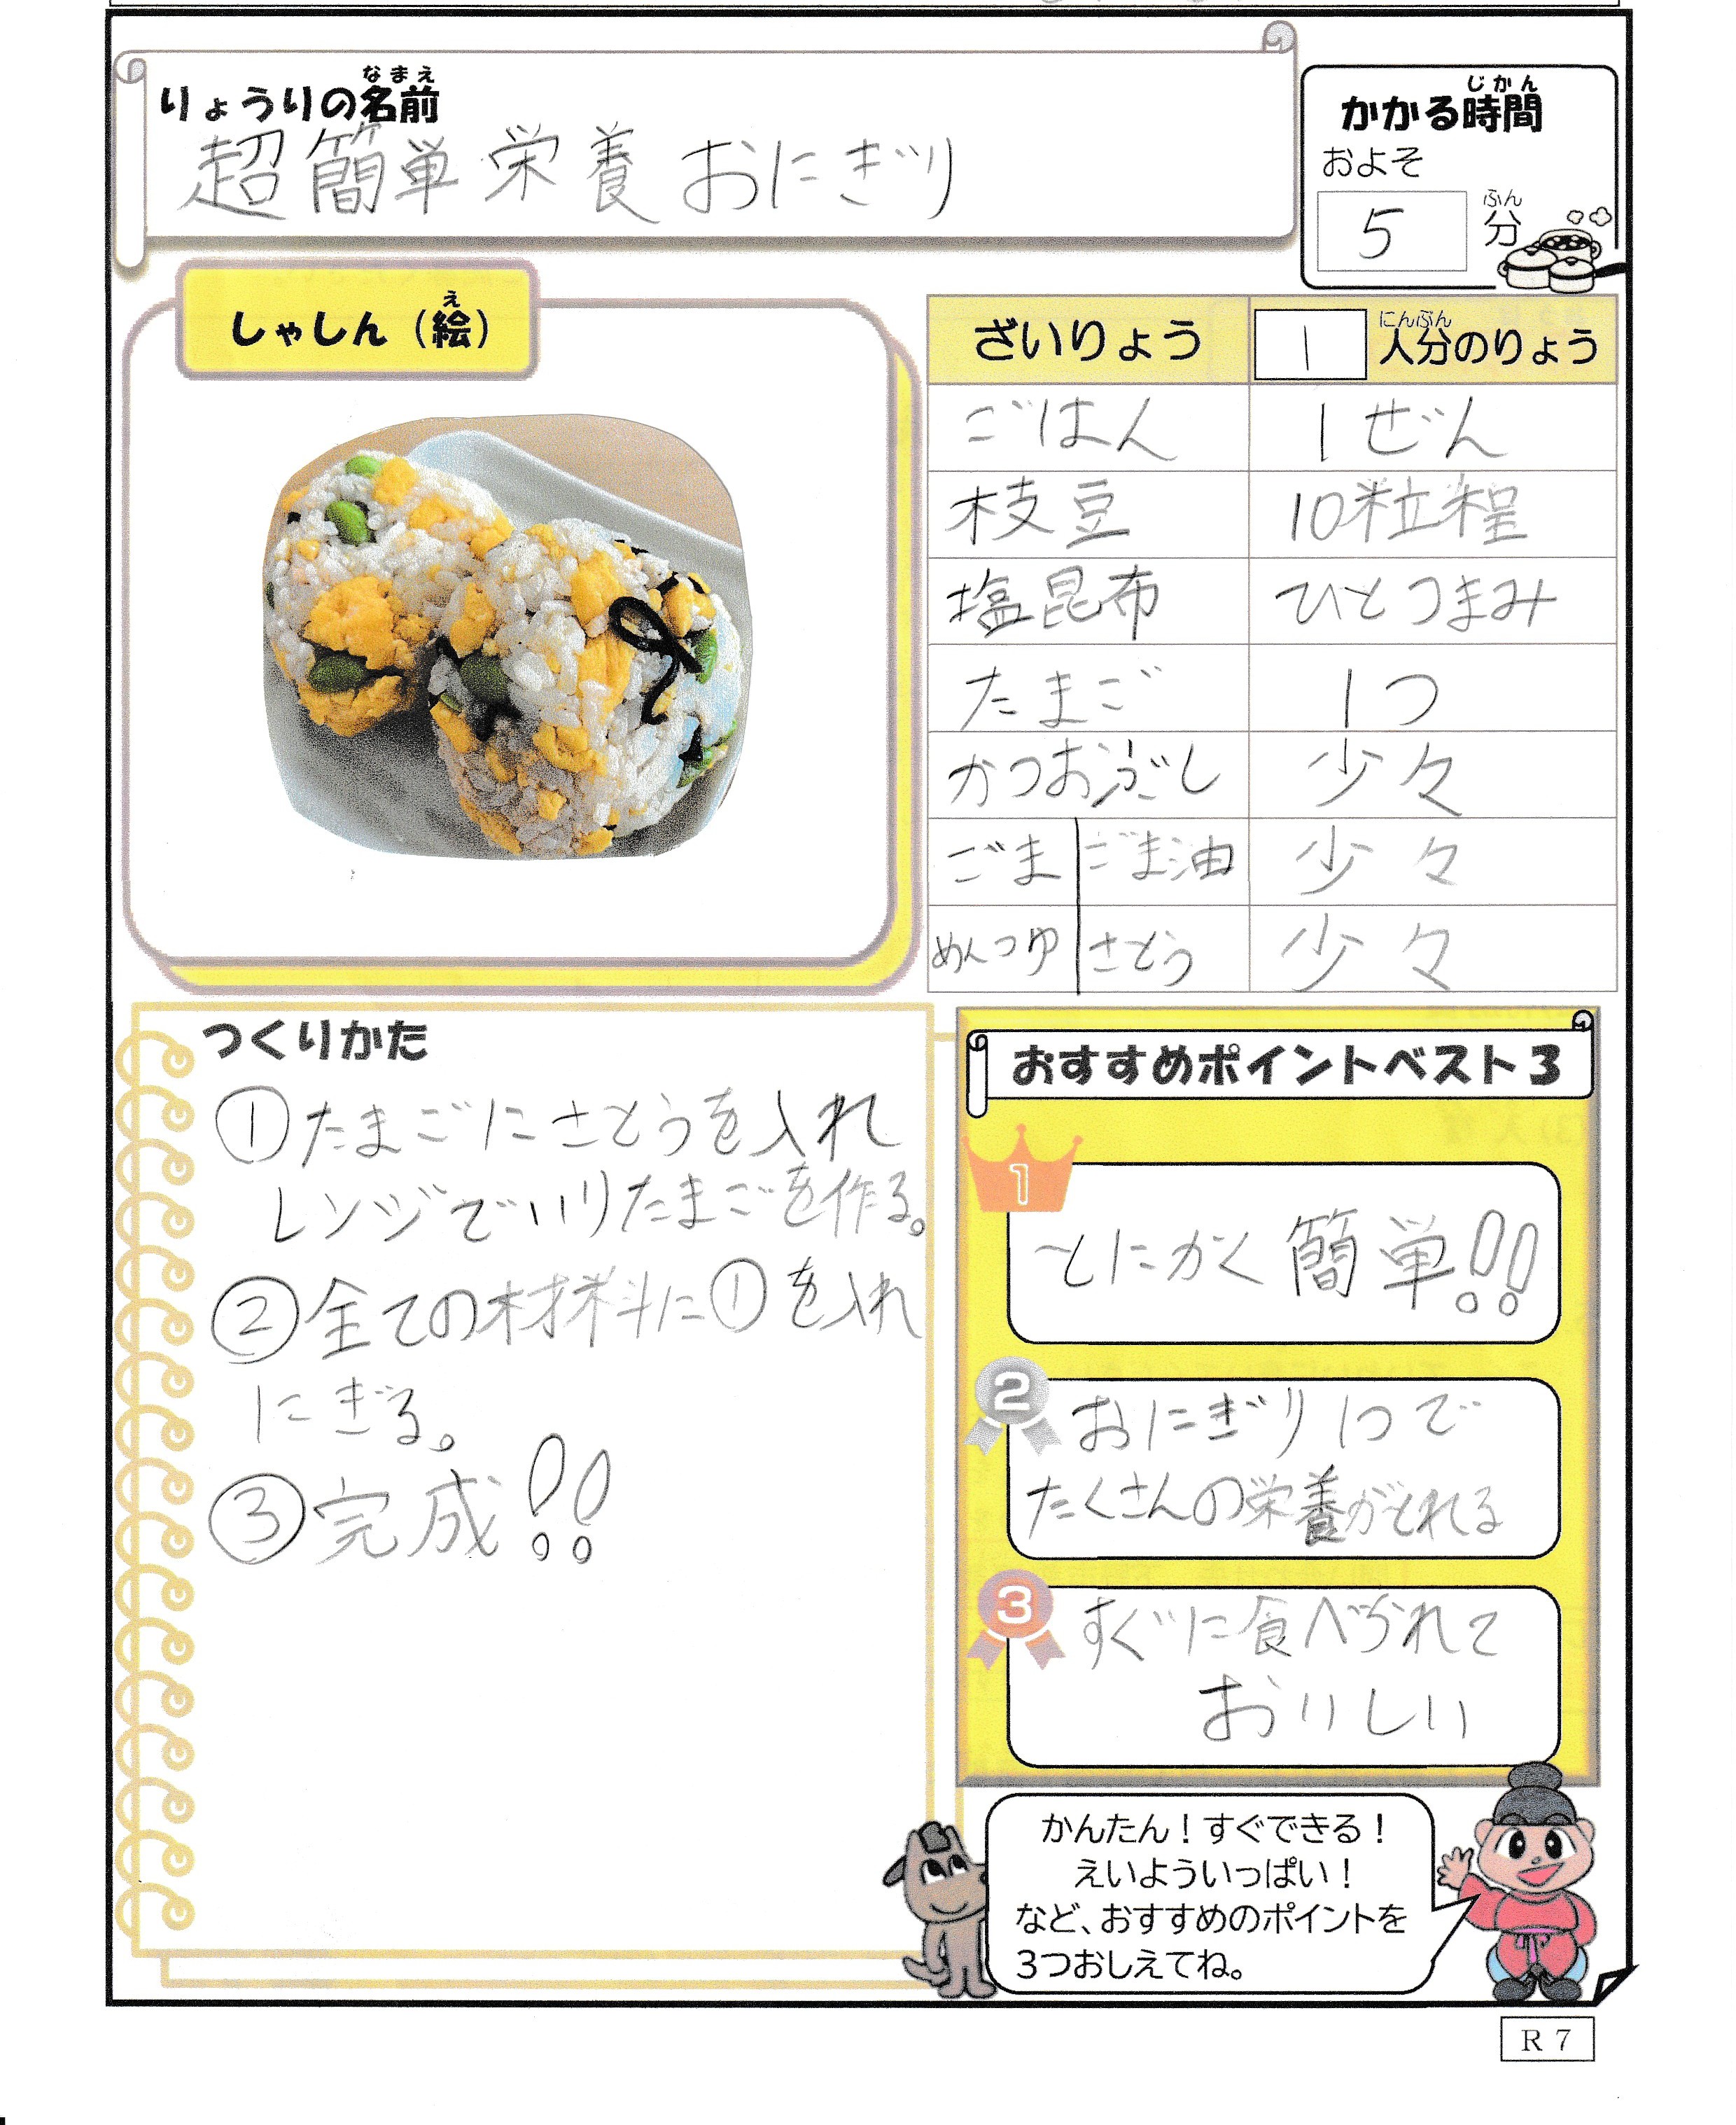 りょうりの名前
なまえ
超簡単栄養おにぎり
かかる時間
じかん
およそ
5 分
ふん
しゃしん（絵）
え
ざいりょう 1 人分のりょう
にんぶん
ごはん 1ぜん
枝豆 10粒程
塩昆布 ひとつまみ
たまご 1つ
かつおぶし 少々
ごま ごま油 少々
めんつゆ さとう 少々
つくりかた
①たまごにさとうを入れ
レンジでいりたまごを作る。
②全ての材料に①を入れ
にぎる。
③完成!!
おすすめポイントベスト3
1
とにかく簡単!!
2
おにぎり1つで
たくさんの栄養がとれる
3
すぐに食べられて
おいしい
かんたん！すぐできる！
えいよういっぱい！
など、おすすめのポイントを
3つおしえてね。
R7